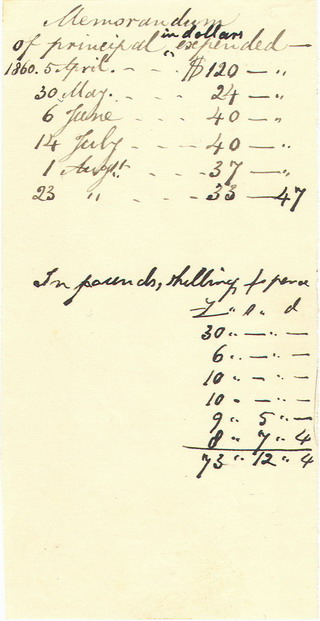 Memorandum
of principal in dollars expended —
1860. 5 April. - - $120 — "
30 May. - - 24 — "
6 June - - - 40 — "
14 July - - - 40 — "
1 Augst - - - 37 — "
23 " - - - 33 — 47
In pounds, shilling, & pence
£ " s " d
30 " — " —
6 " — " —
10 " — " —
10 " — " —
9 " 5 " —
8 " 7 " 4
73 " 12 " 4